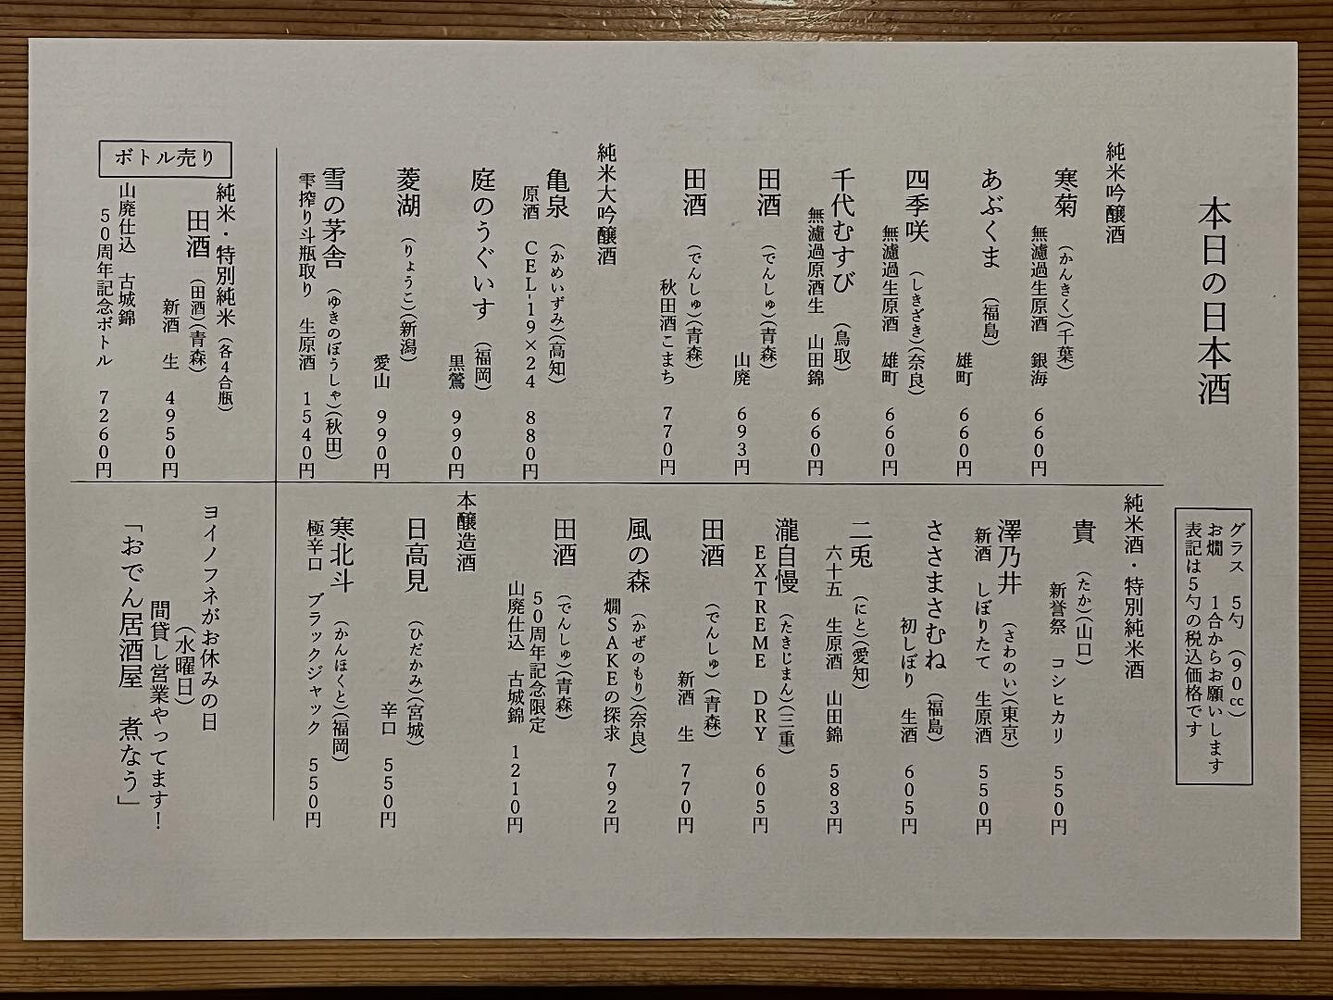 本日の日本酒
グラス　5勺　(90cc)
お燗　1合からお願いします
表記は5勺の税込価格です
純米吟醸酒
寒菊　(かんきく)(千葉)
無濾過生原酒　銀海　660円
あぶくま　(福島)
雄町　660円
四季咲　(しきざき)(奈良)
無濾過生原酒　雄町　660円
千代むすび　(鳥取)
無濾過原酒生　山田錦　660円
田酒　(でんしゅ)(青森)
山廃　693円
田酒　(でんしゅ)(青森)
秋田酒こまち　770円
純米大吟醸酒
亀泉　(かめいずみ)(高知)
原酒　CEL-19×24　880円
庭のうぐいす　(福岡)
黒鶯　990円
菱湖　(りょうこ)(新潟)
愛山　990円
雪の茅舎　(ゆきのぼうしゃ)(秋田)
雫搾り斗瓶取り　生原酒　1540円
純米酒・特別純米酒
貴　(たか)(山口)
新誉祭　コシヒカリ　550円
澤乃井　(さわのい)(東京)
新酒　しぼりたて　生原酒　550円
ささまさむね　(福島)
初しぼり　生酒　605円
二兎　(にと)(愛知)
六十五　生原酒　山田錦　583円
瀧自慢　(たきじまん)(三重)
EXTREME　DRY　605円
田酒　(でんしゅ)(青森)
新酒　生　770円
風の森　(かぜのもり)(奈良)
燗SAKEの探求　792円
田酒　(でんしゅ)(青森)
50周年記念限定
山廃仕込　古城錦　1210円
本醸造酒
日高見　(ひだかみ)(宮城)
辛口　550円
寒北斗　(かんほくと)(福岡)
極辛口　ブラックジャック　550円
ボトル売り
純米・特別純米　(各4合瓶)
田酒　(田酒)(青森)
新酒　生　4950円
山廃仕込　古城錦
50周年記念ボトル　7260円
ヨイノフネがお休みの日
(水曜日)
間貸し営業やってます！
「おでん居酒屋　煮なう」